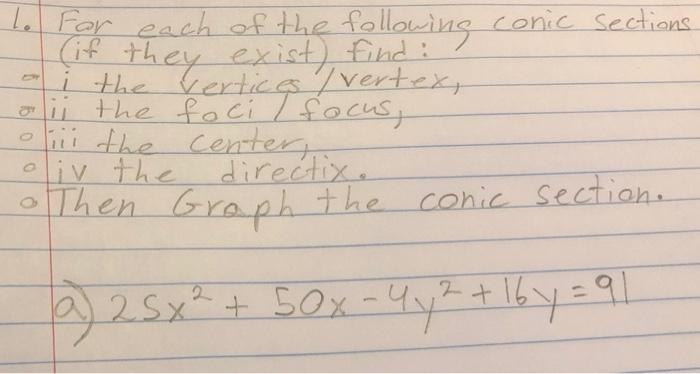 1. For each of the following conic sections
(if they exist) find:
i the vertices / vertex,
ii the foci / focus,
iii the center,
iv the directix.
Then Graph the conic section.
a) 25x² + 50x - 4y² + 16y = 91